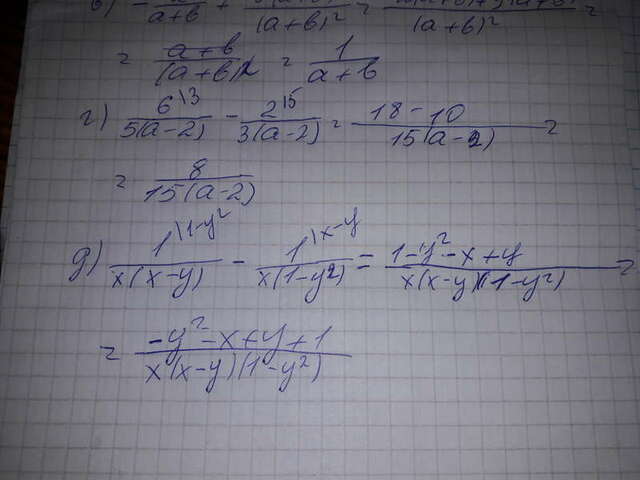 = (a+b)/(a+b)² = 1/(a+b)
г) 6\3/5(a-2) - 2\5/3(a-2) = (18-10)/15(a-2) =
= 8/15(a-2)
д) 1\1-y²/x(x-y) - 1\x-y/x(1-y²) = (1-y²-x+y)/x(x-y)(1-y²) =
= (-y²-x+y+1)/x(x-y)(1-y²)